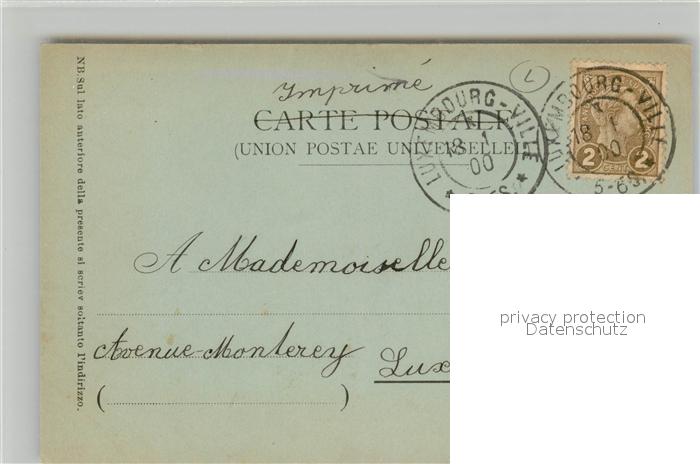 Imprimé
CARTE POSTALE
(UNION POSTAE UNIVERSELLE)
LUXEMBOURG-VILLE
18 1
00
LUXEMBOURG-VILLE
18 1
00
5-6S.
2 2
CENT.
L
NB. Sul lato anteriore della presente si scriev soltanto l'indirizzo.
A Mademoiselle
Avenue-Monterey
Lux
( )
privacy protection
Datenschutz